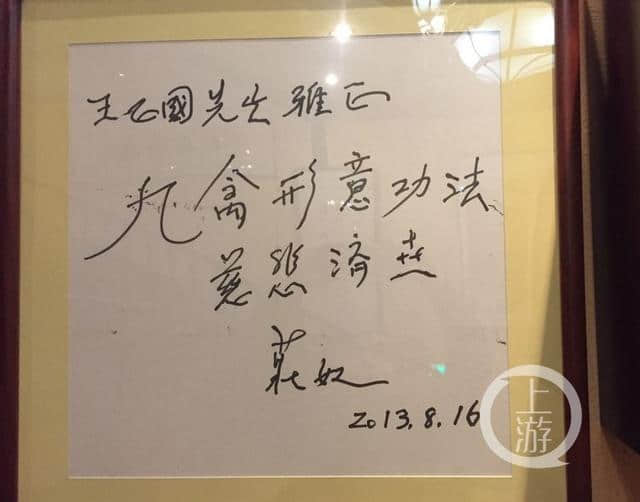 王正國先生雅正
九禽形意功法
慈悲濟世
莊奴
2013.8.16
上游